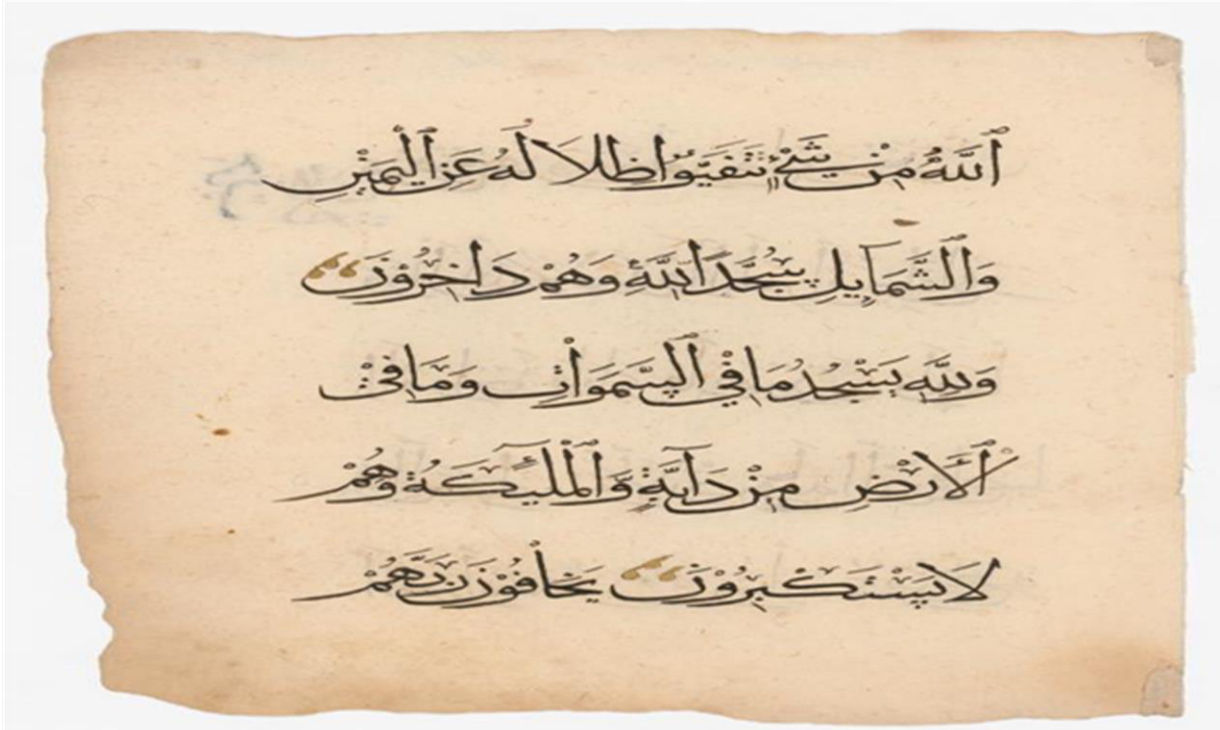 ٱللَّهُ مِنْ شَيْءٍ تَتَفَيَّؤُا ظِلَالُهُ عَنِ الْيَمِيْنِ
وَالشَّمَايِلِ سُجَّدًا لِلَّهِ وَهُمْ دَاخِرُوْنَ
وَلِلَّهِ يَسْجُدُ مَا فِي السَّمَوَاتِ وَمَا فِيْ
الْأَرْضِ مِنْ دَآبَّةٍ وَالْمَلٰٓئِكَةُ وَهُمْ
لَا يَسْتَكْبِرُوْنَ يَخَافُوْنَ رَبَّهُمْ